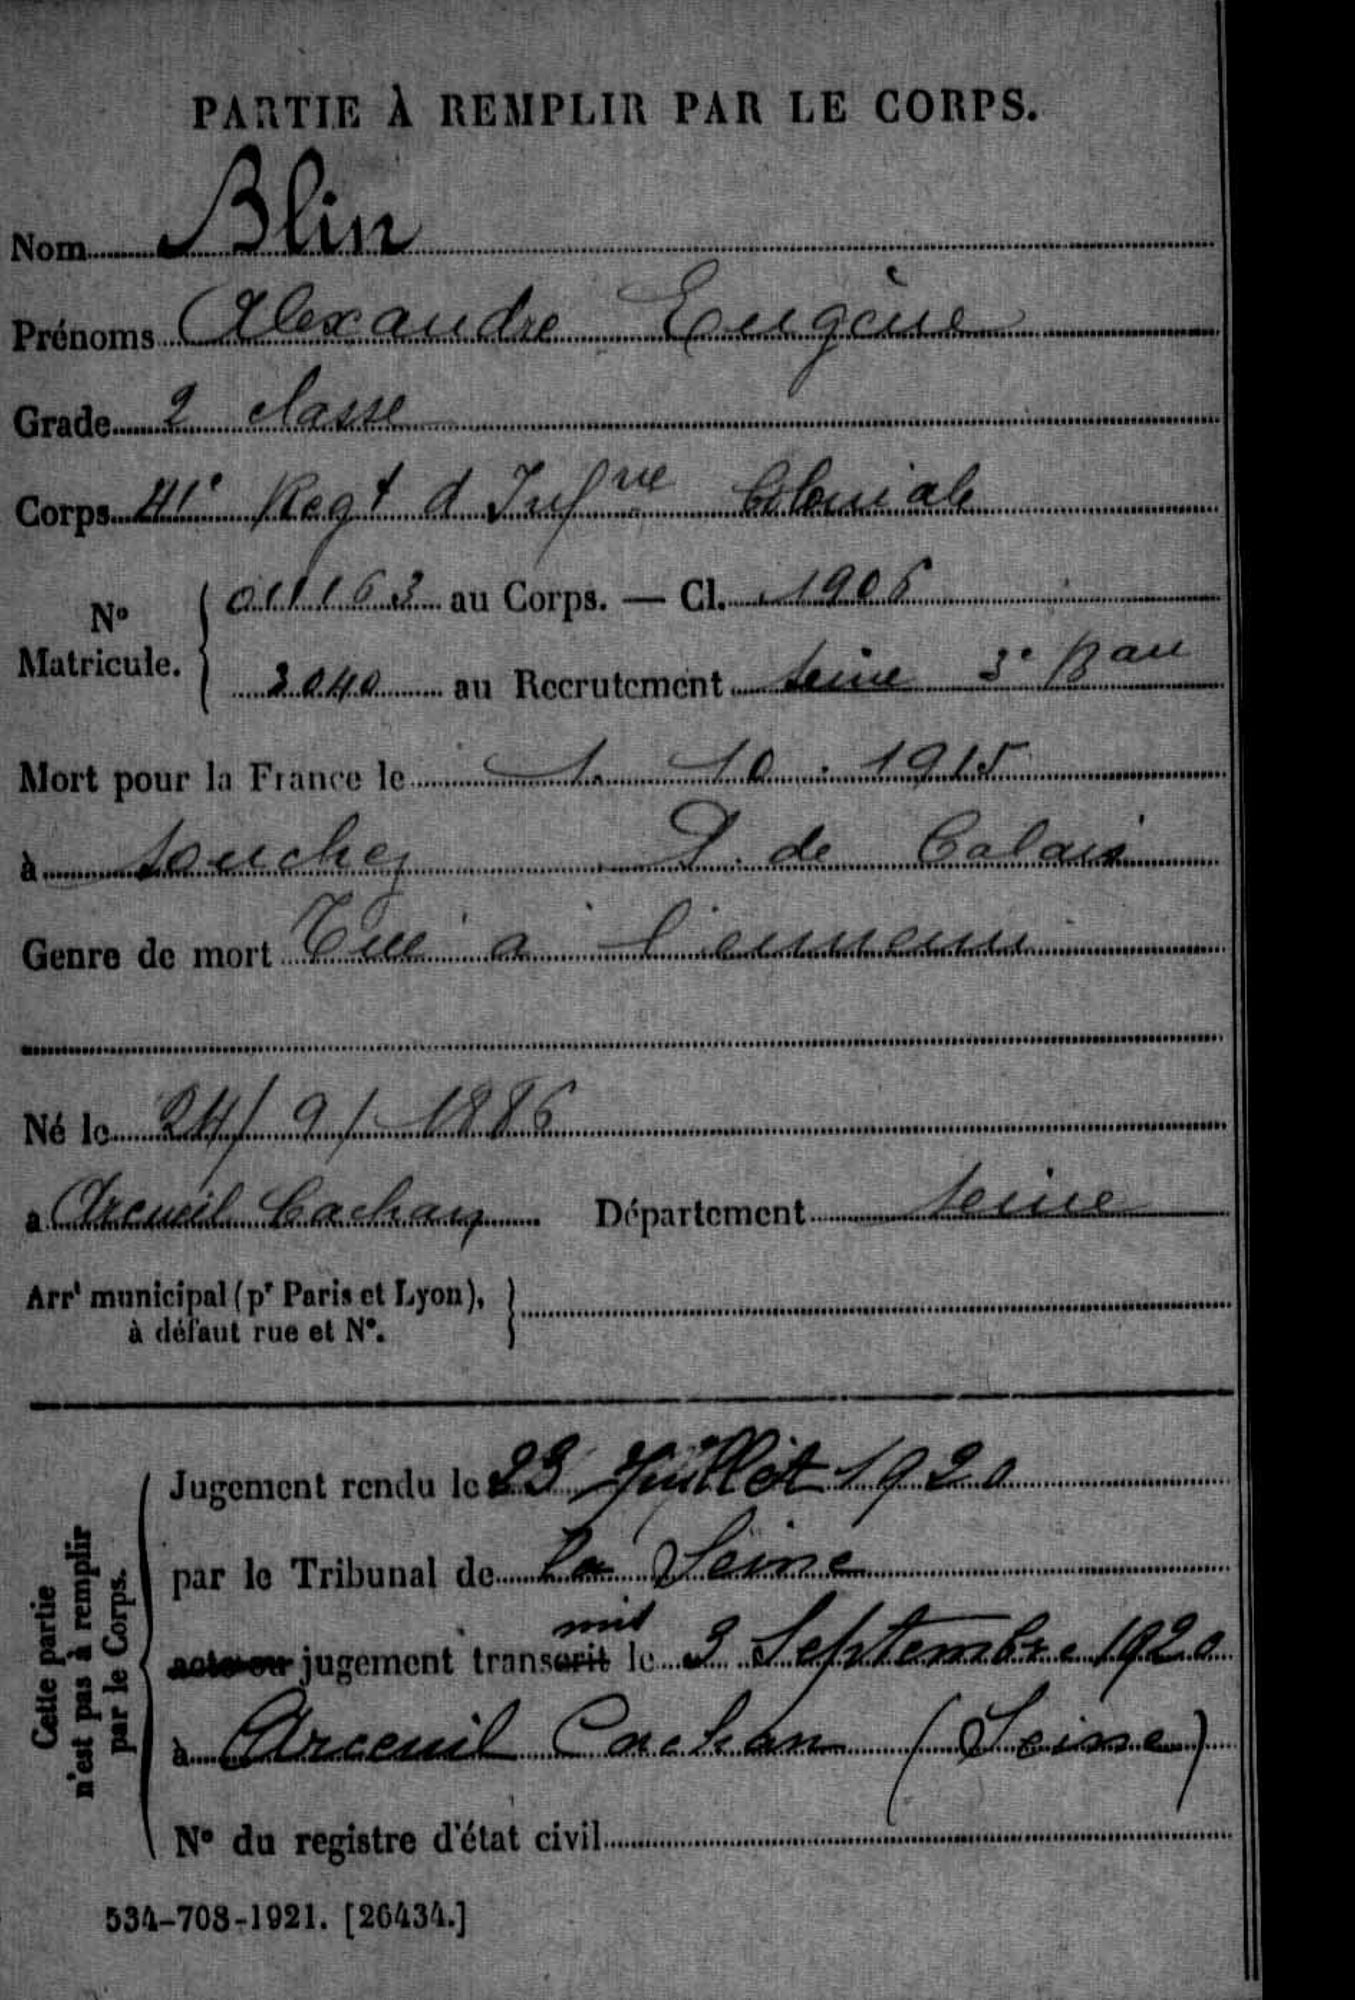 PARTIE À REMPLIR PAR LE CORPS.
Nom Blin
Prénoms Alexandre Eugène
Grade 2 classe
Corps 41e Regt d Infrie Coloniale
No Matricule. { 011163 au Corps. — Cl. 1906
3040 au Recrutement Seine 3e Bau
Mort pour la France le 1 10 . 1915
à Souchez P. de Calais
Genre de mort Tué à l'ennemi
Né le 24/9/1886
a Arcueil Cachan Département Seine
Arrt municipal (pr Paris et Lyon), }
à défaut rue et No.
Cette partie
n'est pas à remplir
par le Corps.
Jugement rendu le 23 Juillet 1920
par le Tribunal de la Seine
acte ou jugement transcrit mis le 3 Septembre 1920
à Arceuil Cachan (Seine)
No du registre d'état civil
534-708-1921. [26434.]